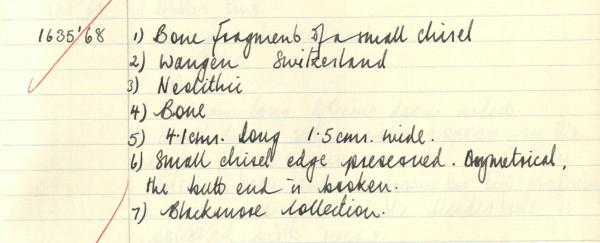 1635'68 1) Bone fragment of a small chisel
2) Wangen Switzerland
3) Neolithic
4) Bone
5) 4.1cms. long 1.5cms. wide.
6) Small chisel edge preserved. Asymetrical,
the butt end is broken.
7) Blackmore Collection.